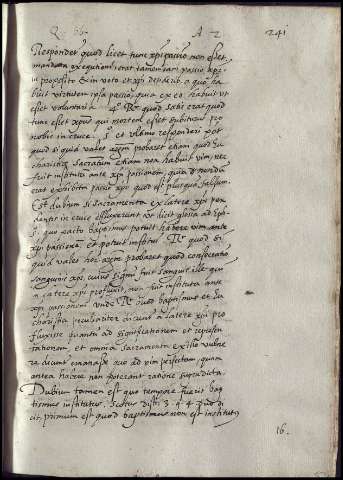 Q. 66. A 2 241
Respondet quod licet tunc xpi passio non esset
mandata exequutioni, erat tamen iam passio xpi
in proposito et in voto et xpi
habuit virtutem ipsa passio, qua ex eo habuit ut
esset voluntaria. 4º Rº quod satis erat quod
tunc esset xpus qui mortem esset subiturus pro
nobis in cruce. 5º et ultimo responderi pot
quod si quid valet argum probaret etiam quod Eu
charistiae Sacratum etiam non habuit vim, nec
fuit institutum ante xpi passionem, quia nondum
erat exhibita passio xpi quod est plusquam falsum.
Est dubium si Sacramenta ex latere xpi pen
dentis in cruce effluxerunt ut dicit glossa ad
5. quo pacto baptismus potuit habere vim ante
xpi passionem et potuit institui. Rº quod si
quid valet hoc argum probaret quod consecratio
sanguinis xpi, cuius signum fuit sanguis ille qui
a latere xpi profluxit, non fuit instituta ante
xpi passionem. Unde Rº quod baptismus et Eu
charistia peculiariter dicunt a latere xpi pro
fluxisse quantum ad significationem et repesen
tationem, et omnia sacramenta ex illo vulne
re dicunt emanasse quo ad vim perfectam, quam
antea habere non poterant ratione supradicta.
Dubium tamen est quo tempore fuerit bap
tismus institutus. Scotus dist. 3. q. 4 di
cit, primum est quod baptismus non est institutus
16.